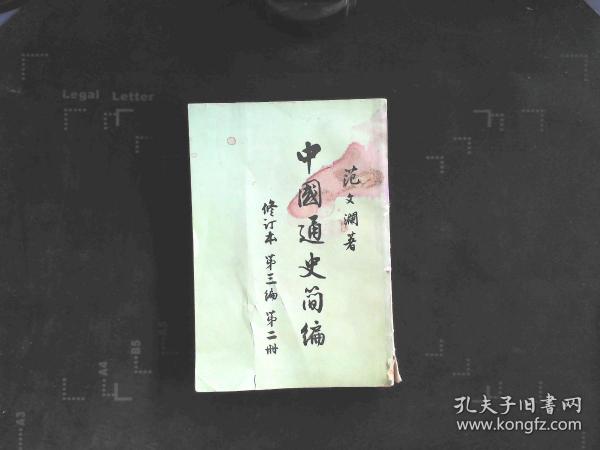 范文瀾著
中國通史简编
修订本 第三编 第二册
Legal Letter
B5
A4
A3
孔夫子旧书网
www.kongfz.com